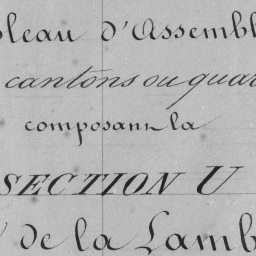 bleau d'Assembl
cantons ou quar
composant la
SECTION U
de la Lamb